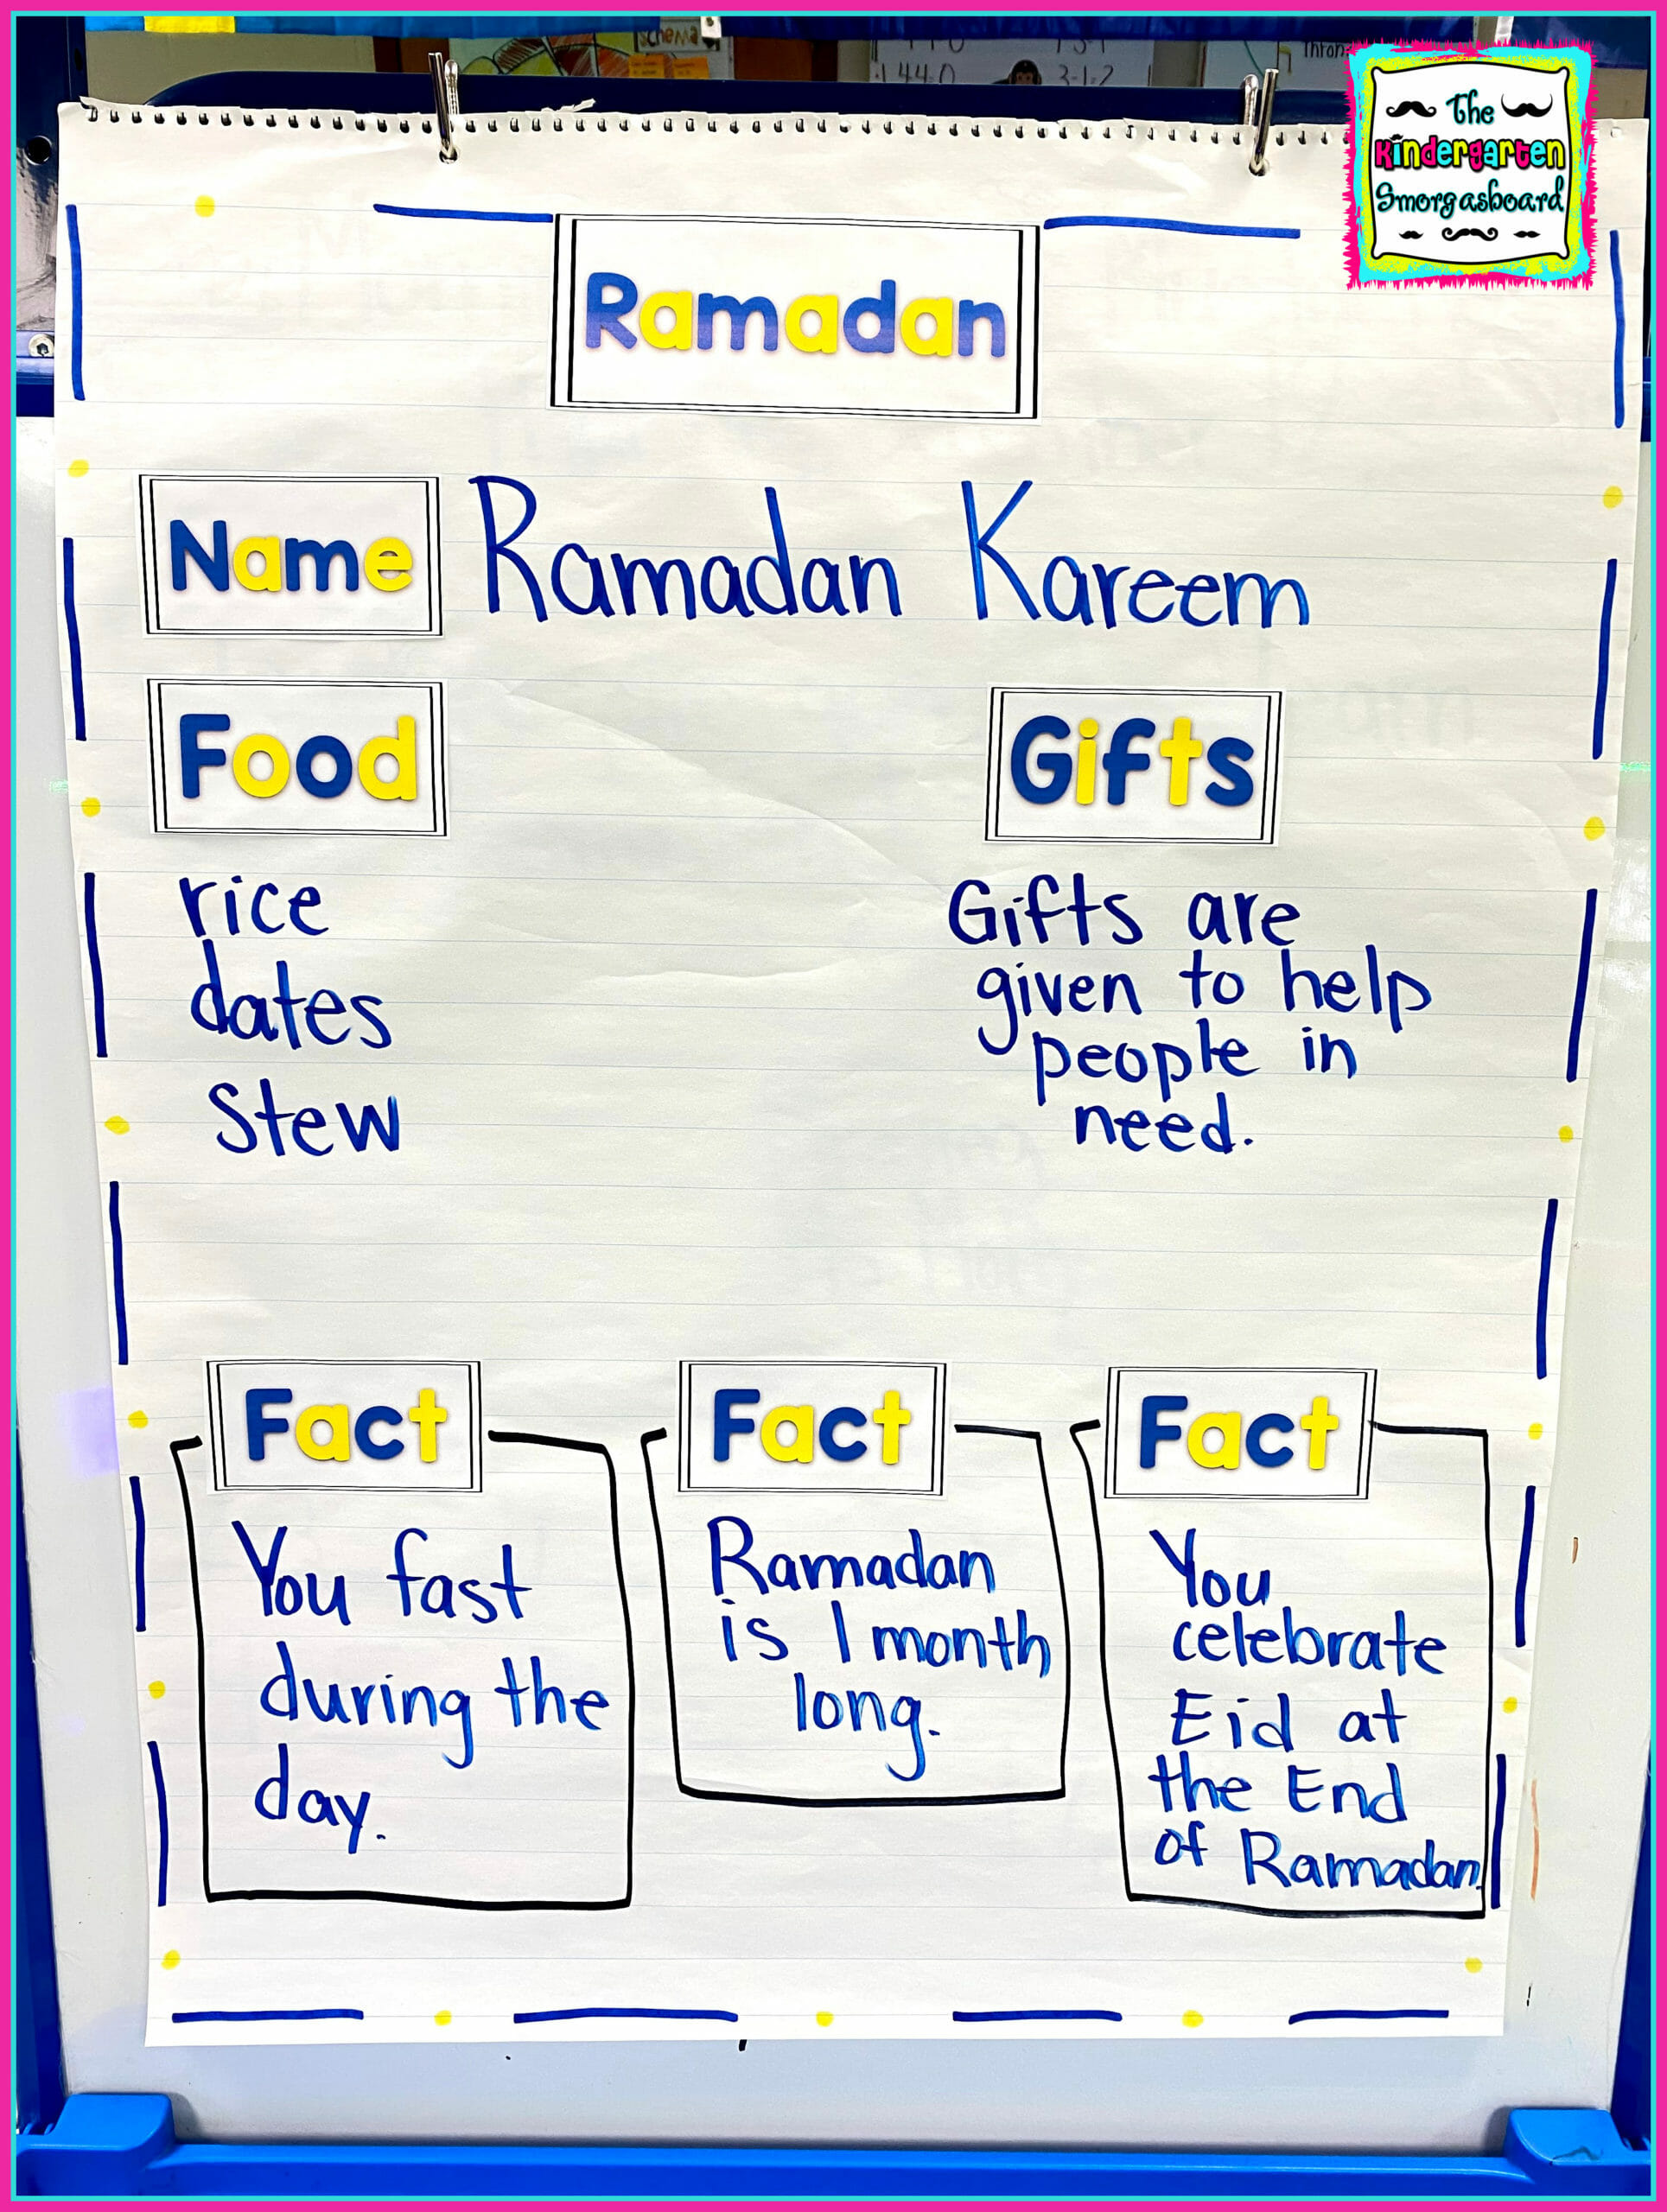 schema
44-0
3-1=2
The
Kindergarten
Smorgasboard
Ramadan
Name Ramadan Kareem
Food
rice
dates
stew
Gifts
Gifts are
given to help
people in
need.
Fact
You fast
during the
day.
Fact
Ramadan
is 1 month
long.
Fact
You
celebrate
Eid at
the End
of Ramadan.